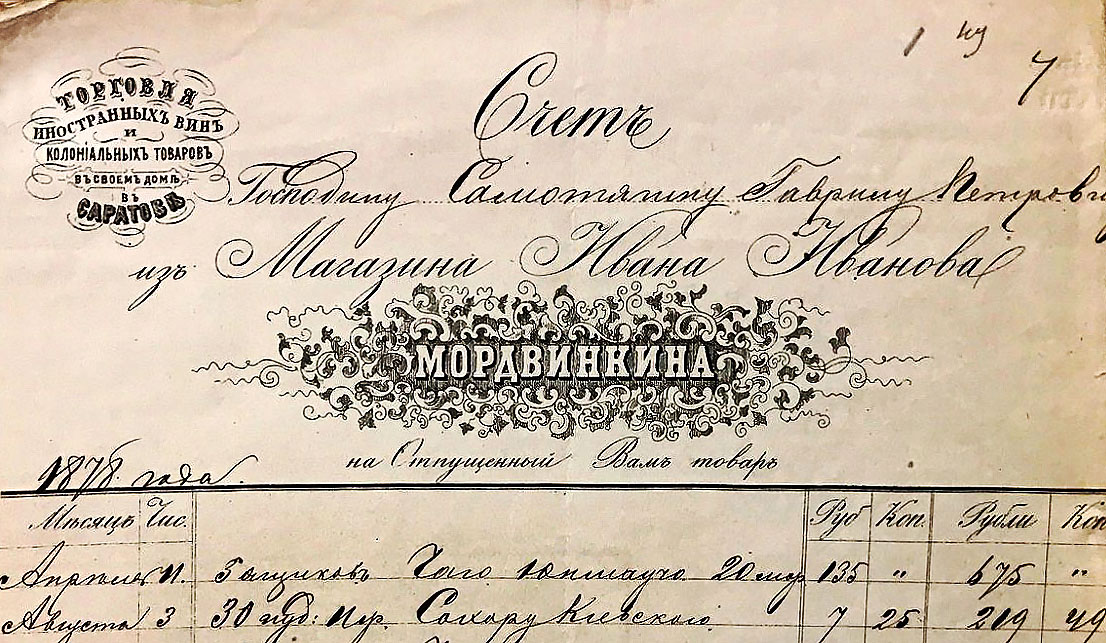 1
7
ТОРГОВЛЯ
ИНОСТРАННЫХЪ ВИНЪ
И
КОЛОНІАЛЬНЫХЪ ТОВАРОВЪ
ВЪ СВОЕМЪ ДОМѢ
ВЪ
САРАТОВѢ
Счетъ
Господину Самотяпину Гаврилу Петрови
изъ Магазина Ивана Иванова
МОРДВИНКИНА
на Отпущенный Вамъ товаръ
1878 года.
Мѣсяцъ Чис. Руб Коп. Рубли Коп
Апреля 11. 5 ящиковъ Чаю 20 135 " 675 "
Августа 3 30 пуд: Сахару Кіевскаго 7 25 219 49